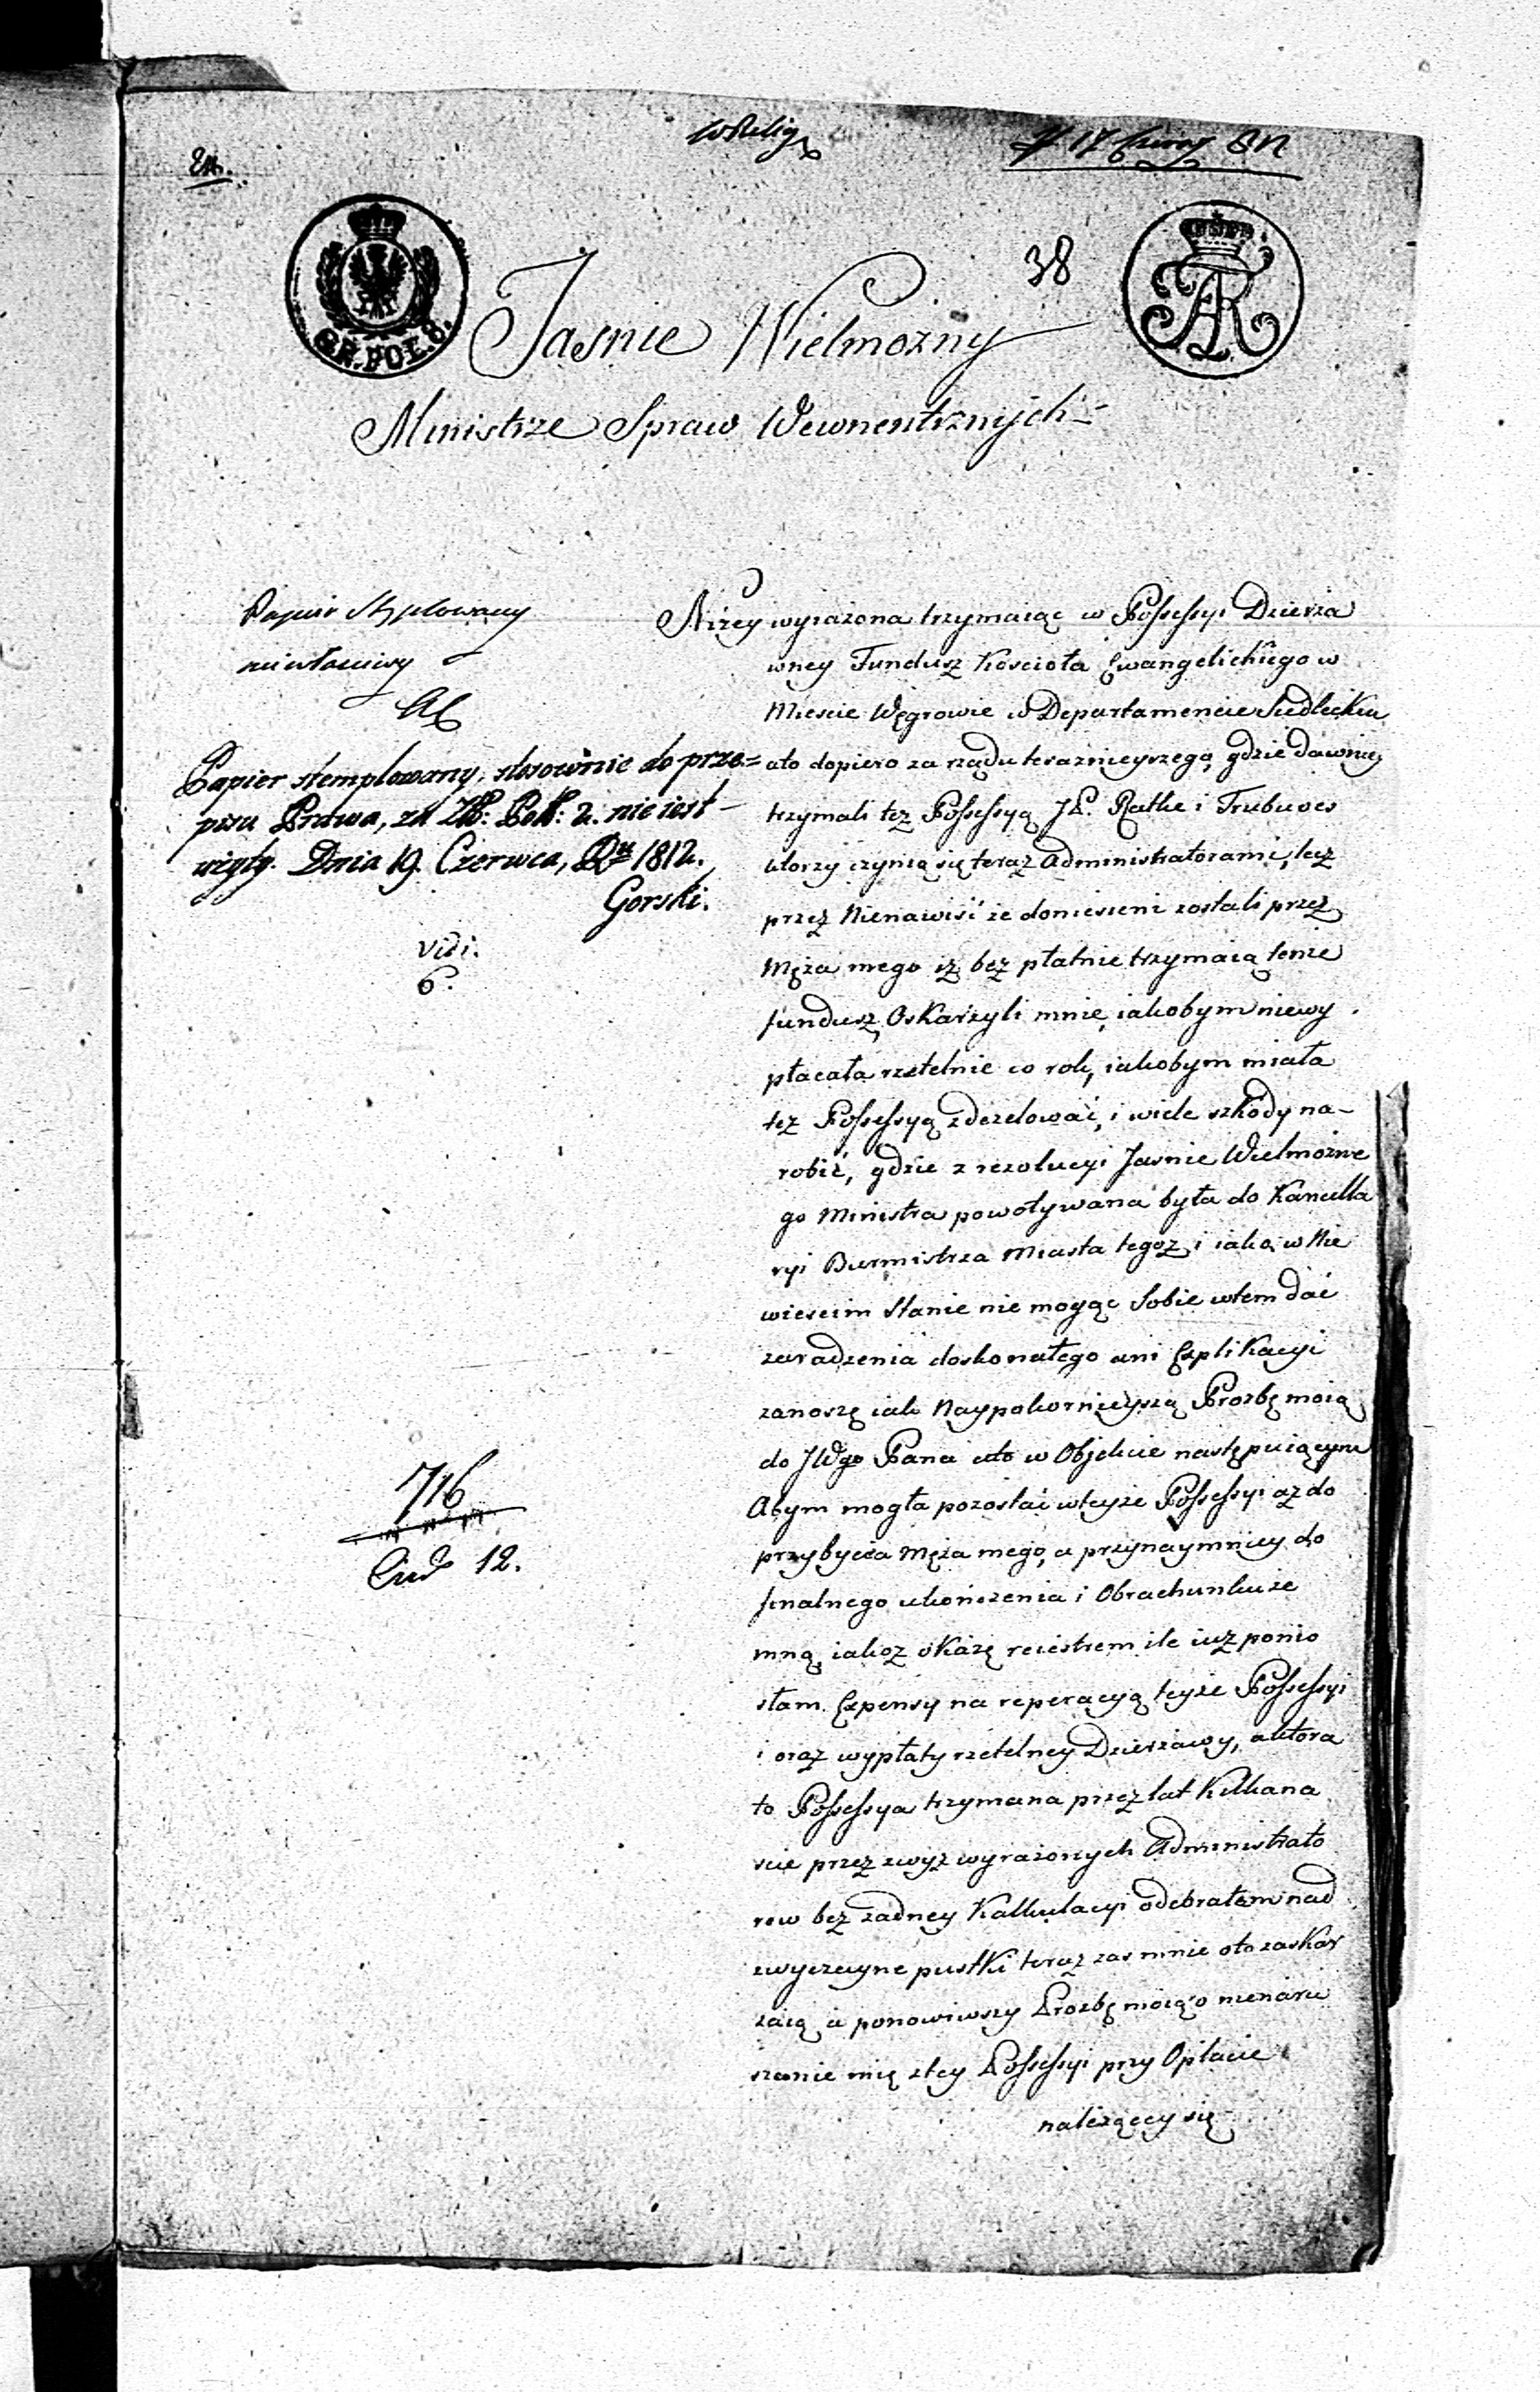 WRelig
17 Czerw
38
GR. POL. 8.
Jasnie Wielmożny
Ministrze Spraw Wewnentrznych
Papier Stęplowany
niewłasciwy
Papier stemplowany, stosownie do prze=
pisu Prawa, za Zł: Pol: 2. nie iest
wzięty. Dnia 19. Czerwca, 1812.
Gorski.
vidi.
6.
716
12.
Niżey wyrażona trzymaiąc w Possessyi Dzierża
wney Fundusz Koscioła Ewangelickiego w
Miescie Węgrowie w Departamencie Siedleckim
ato dopiero za rządu teraznieyszego, gdzie dawniey
trzymali tęz Possessyą JP. Ratke i
ktorzy czynią się teraz Administratorami, lecz
przez Nienawiść że doniesieni zostali przez
Męża mego iz bez płatnie trzymaią tenże
fundusz, Oskarżyli mnie, iakobym niewy
płacała rzetelnie co rok, iakobym miała
tęz Possessyą zdezelować, i wiele szkody na-
robić, gdzie z rezolucyi Jasnie Wielmożne
go Ministra powoływana była do Kancella
ryi Burmistrza Miasta tegoz, i iako w Nie
wiescim Stanie nie mogąc Sobie wtem dać
zaradzenia doskonałego ani Explikacyi
zanoszę iak Naypokornieyszą Prozbę moią
do JWgo Pana ato w Objekcie następuiącym
Abym mogła pozostać wteyże Possessyi az do
przybycia Męża mego, a przynaymniey do
finalnego ukończenia i Obrachunku ze
mną, iakoz okażę reiestrem ile iuz ponio
słam Expensy na reperacyą teyże Possessyi
i oraz wypłaty rzetelney Dzierżawy, aktora
to Possessya trzymana przez lat Kilkana
scie przez zwyz wyrażonych Administrato
row bez żadney Kalkulacyi odebrałam nad
zwyczayne pustki teraz zas mnie oto zaskar
żaią a ponowiwszy Prozbę moią o nienaru
szanie mię ztey Possessyi przy Opłacie
należącey się